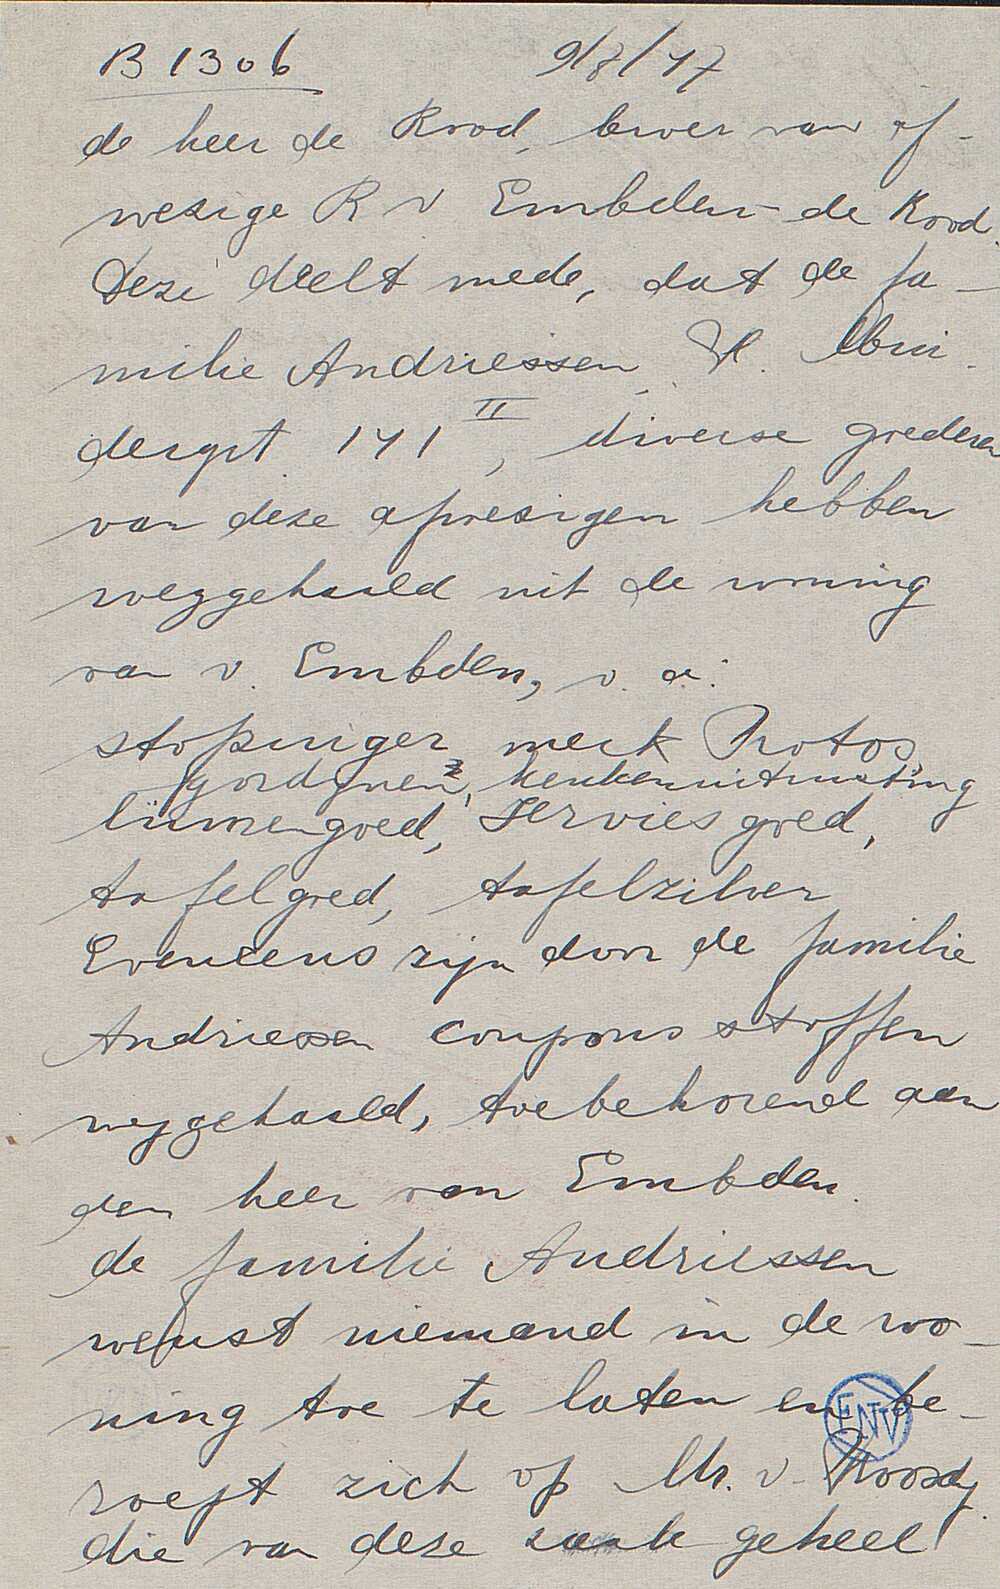 B 1306 9/8/47
de heer de Rood, broer van af-
wezige R v Embden-de Rood.
Deze deelt mede, dat de fa-
milie Andriessen,
dergst. 141 II, diverse goederen
van deze afwezigen hebben
weggehaald uit de woning
van v. Embden, o.a:
stofzuiger merk Protos,
gordijnen, keukenuitrusting
linnengoed, serviesgoed,
tafelgoed, tafelzilver
Eveneens zijn door de familie
Andriessen coupons stoffen
weggehaald, toebehorend aan
den heer van Embden.
de familie Andriessen
wenst niemand in de wo-
ning toe te laten en be-
ENV
roept zich op Mr. v.
die van deze zaak geheel